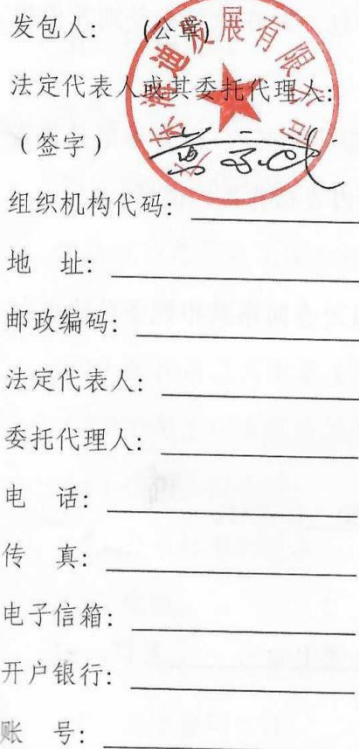 发包人： (公章)
法定代表人或其委托代理人：
（签字）
组织机构代码：
地 址：
邮政编码：
法定代表人：
委托代理人：
电 话：
传 真：
电子信箱：
开户银行：
账 号：
发展有限公司